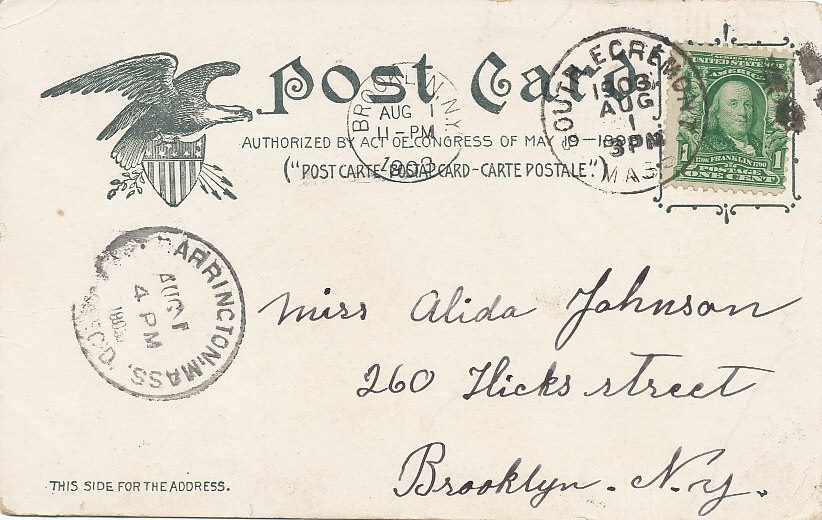 Post Card
AUTHORIZED BY ACT OF CONGRESS OF MAY 19-1898
("POST CARTE-POSTAL CARD-CARTE POSTALE".)
BROOKLYN, N.Y.
AUG 1
11-PM
1903
AUG
1
3 PM
MASS
UNITED STATES OF
AMERICA
1 1790 FRANKLIN 1790 1
POSTAGE
ONE CENT
BARRINGTON, MASS.
AUG 1
4 PM
REC'D.
Miss Alida Johnson
260 Hicks street
Brooklyn. N.y.
THIS SIDE FOR THE ADDRESS.